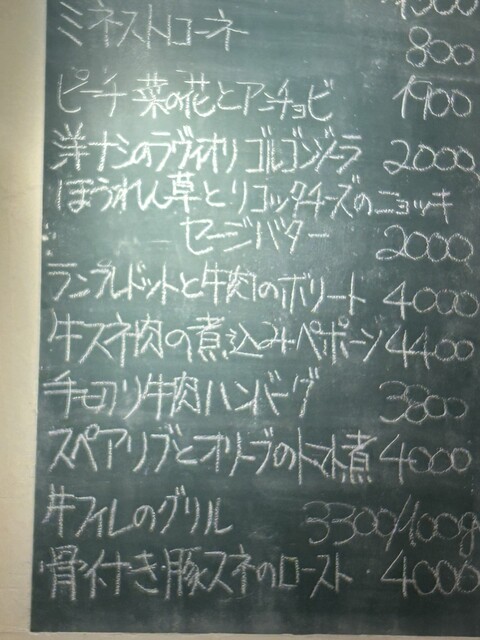 ミネストローネ 800
ピーチ 菜の花とアンチョビ 1900
洋ナシのラヴィオリ ゴルゴンゾーラ 2000
ほうれん草とリコッタチーズのニョッキ
セージバター 2000
ランプレドットと牛肉のボリート 4000
牛スネ肉の煮込みペポーゾ 4400
手切り牛肉ハンバーグ 3800
スペアリブとオリーブのトマト煮 4000
牛フィレのグリル 3300/100g
骨付き豚スネのロースト 4000